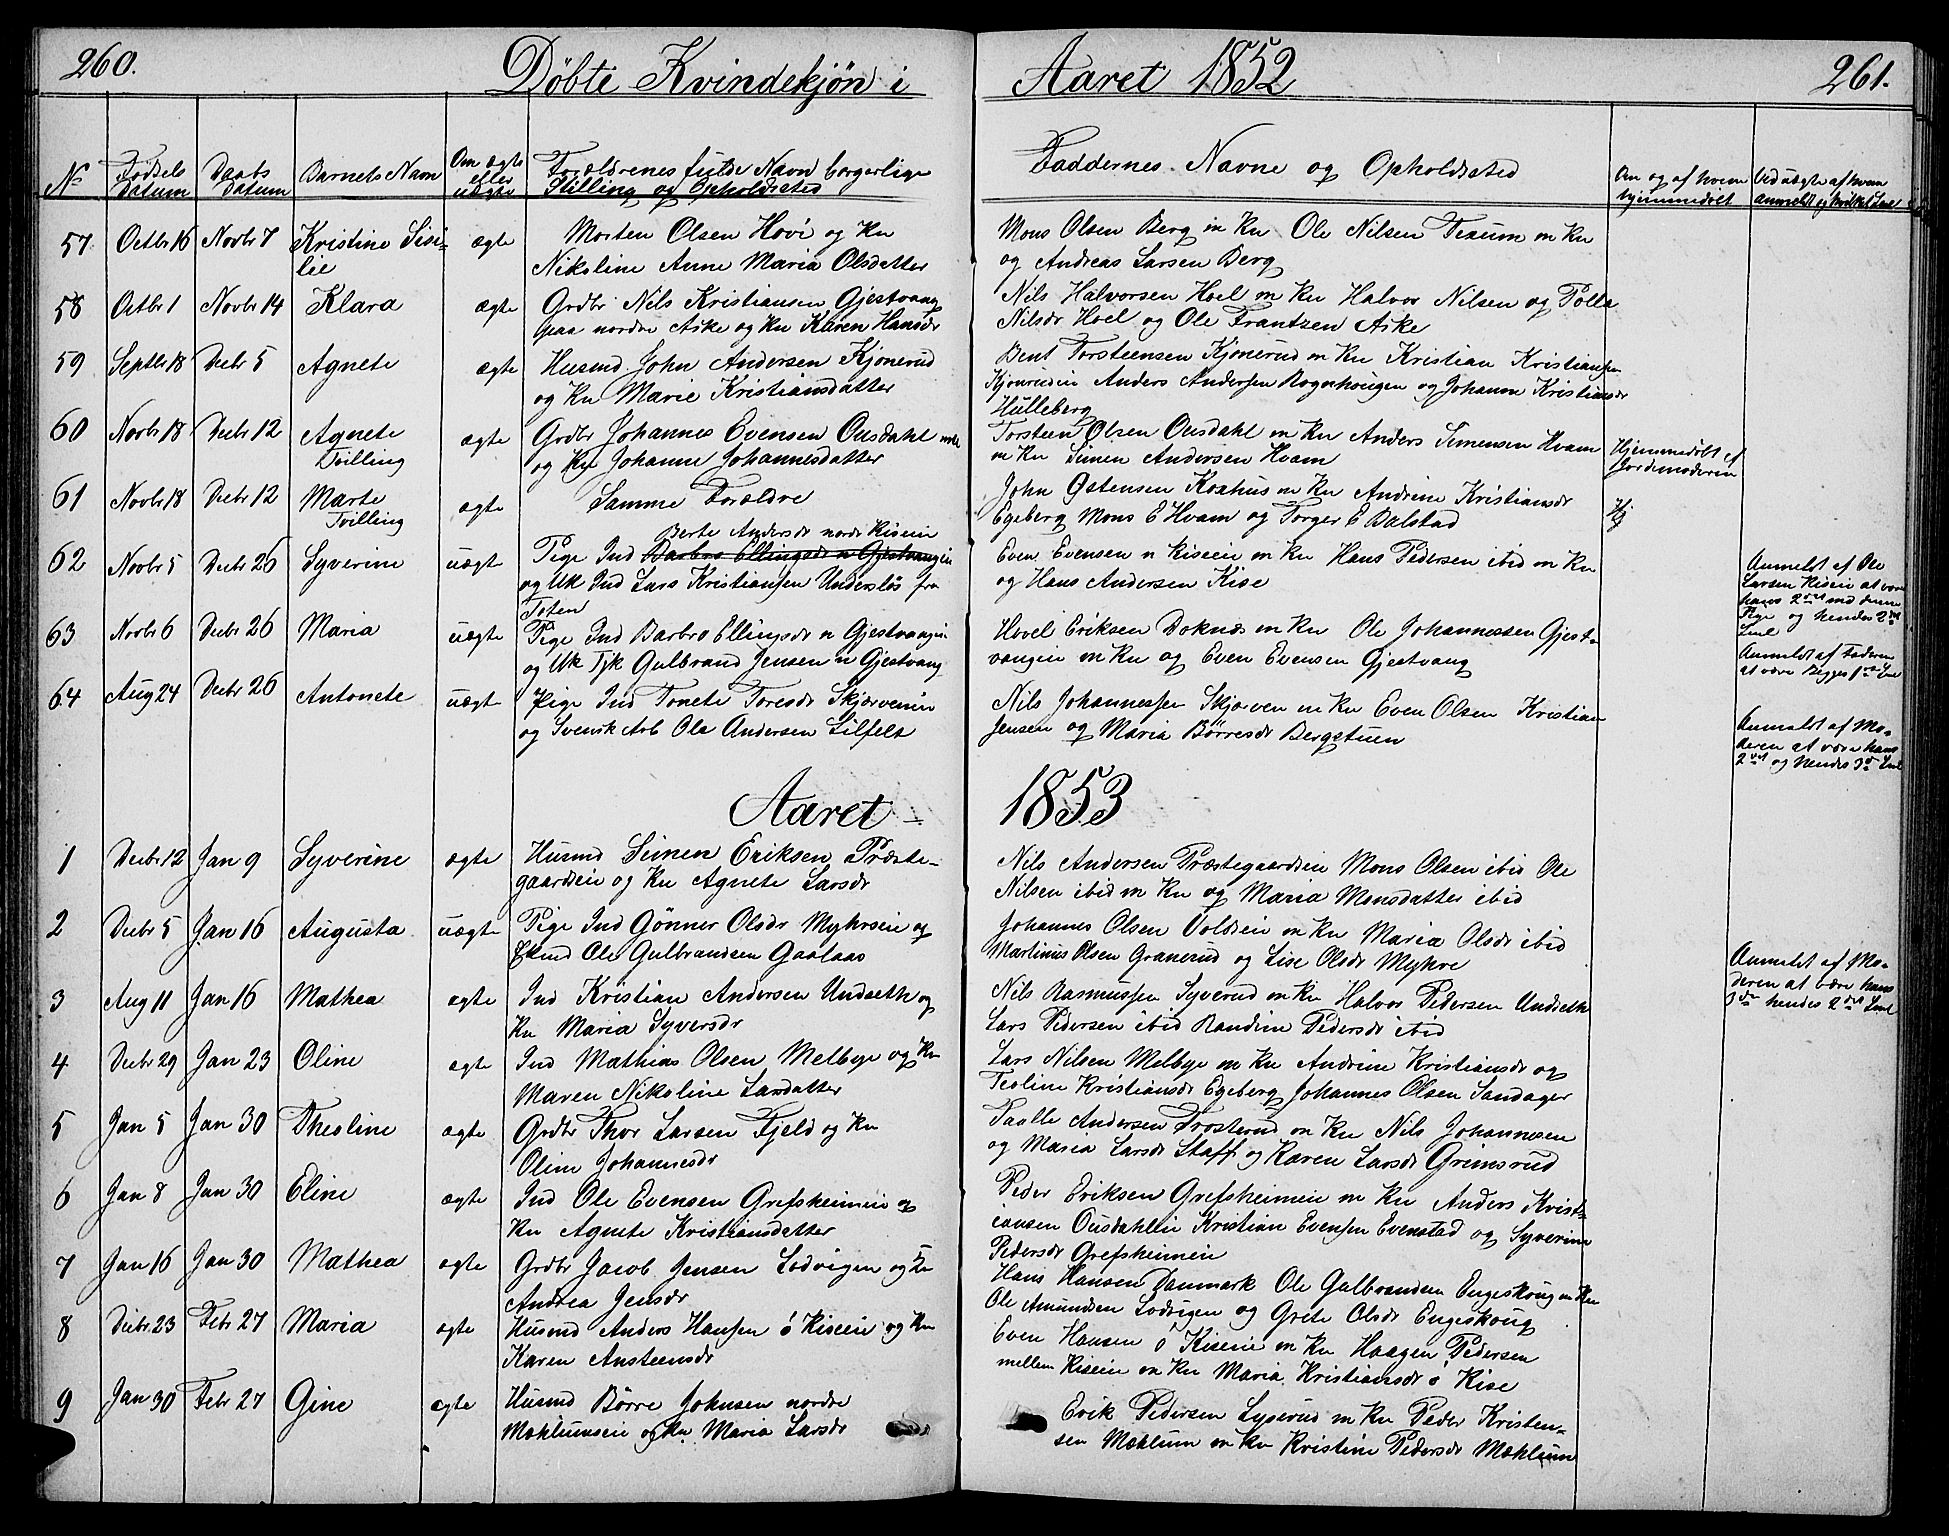 260.
Döbte Kvindekjön i
Aaret 1852
261.
No
Födsels Datum
Daabs Datum
Barnets Navn
Om ægte eller uægte
Forældrenes fulde Navn borgerlige Stilling og Opholdssted
Faddernes Navne og Opholdssted
Om og af hvem hjemmedöbt
Ved uægte af hvem anmeldt og hvilket Leie
57 Octbr 16 Novbr 7 Kristine Sisi-
lie
ægte
Morten Olsen Hovi og Kn
Nikoline Anne Maria Olsdatter
Mons Olsen Berg m Kn Ole Nilsen Texum m Kn
og Andreas Larsen Berg
58 Octbr 1 Novbr 14 Klara ægte
Grdbr Nils Kristiansen Gjestvang
paa nordre Aske og Kn Karen Hansdr
Nils Halvorsen Hoel m Kn Halvor Nilsen og Polla
Nilsdr Hoel og Ole Frantzen Aske
59 Septbr 18 Decbr 5 Agnete ægte
Husmd John Andersen Kjonerud
og Kn Marie Kristiansdatter
Bent Torsteensen Kjönerud m Kn Kristian Kristiansen
Kjonrudeie Anders Andersen Rognhougen og Johanne Kristiansdr
Hulleberg
60 Novbr 18 Decbr 12 Agnete
Tvilling
ægte
Grdbr Johannes Evensen Ousdahl
og Kn Johanne Johannesdatter
Torsteen Olsen Ousdahl m Kn Anders Simensen Hvam
m Kn Simen Andersen Hvam
Hjemmedöbt af
Jordemoderen
61 Novbr 18 Decbr 12 Marte
Tvilling
ægte
Samme Forældre
John Ostensen Koxhus m Kn Andrine Kristiansdr
Egeberg Mons E Hvam og Torger E Dalstad
Hj
62 Novbr 5 Decbr 26 Syverine uægte
Berte Andersdr nordr Kiseie
Pige Ind Barbro Ellingsdr n Gjestvangeie
og Uk Ind Lars Kristiansen Underslös fra
Toten
Even Evensen n Kiseie m Kn Hans Pedersen ibid m Kn
og Hans Andersen Kise
Anmeldt af Ole
Larsen Kiseie at være
hans 2det med denne
Pige og hendes 2det
Leie
63 Novbr 6 Decbr 26 Maria uægte
Pige Ind Barbro Ellingsdr n Gjestvangeie
og Uk Tjk Gulbrand Jensen n Gjestvang
Hovel Eriksen Doknæs m Kn Ole Johannessen Gjest-
vangeie m Kn og Even Evensen Gjestvang
Anmeldt af Faderen
at være Begges 1ste Leie
64 Aug 24 Decbr 26 Antonete uægte
Pige Ind Tonete Toresdr Skjærveneie
og Svensk Arb Ole Andersen Lilfelt
Nils Johannessen Skjærven m Kn Even Olsen Kristian
Jensen og Maria Börresdr Bergstuen
Anmeldt af Mo-
deren at være hans
2det og hendes 3die Leie
Aaret 1853
1 Decbr 12 Jan 9 Syverine ægte
Husmd Simen Eriksen Præste-
gaardseie og Kn Agnete Larsdr
Nils Andersen Præstegaardseie Mons Olsen ibid Ole
Nilsen ibid m Kn og Maria Monsdatter ibid
2 Decbr 5 Jan 16 Augusta uægte
Pige Ind Gönner Olsdr Myhrseie og
Ekmd Ole Gulbrandsen Gaalaas
Johannes Olsen Voldseie m Kn Maria Olsdr ibid
Martinus Olsen Granerud og Lise Olsdr Myhre
Anmeldt af Mo-
deren at være hans
3die hendes 2det Leie
3 Aug 11 Jan 16 Mathea ægte
Ind Kristian Andersen Undseth og
Kn Maria Syversdr
Nils Rasmussen Syverud m Kn Halvor Pedersen Undseth
Lars Pedersen ibid Randine Pedersdr ibid
4 Decbr 29 Jan 23 Oline ægte
Ind Mathias Olsen Melbye og Kn
Maren Nikoline Larsdatter
Lars Nilsen Melbye m Kn Andrine Kristiansdr og
Teoline Kristiansdr Egeberg Johannes Olsen Sandager
5 Jan 5 Jan 30 Theoline ægte
Grdbr Thor Larsen Fjeld og Kn
Oline Johannesdr
Paalle Andersen Frosterud m Kn Nils Johannesen
og Maria Larsdr Staff og Karen Larsdr Grimsrud
6 Jan 8 Jan 30 Eline ægte
Ind Ole Evensen Grefsheimeie og
Kn Agnete Kristiansdatter
Peder Eriksen Grefsheimeie m Kn Anders Krist-
iansen Ousdahleie Kristian Evensen Evenstad og Syverine
Pedersdr Grefsheimeie
7 Jan 16 Jan 30 Mathea ægte
Grdbr Jacob Jensen Lodvigen og Kn
Andrea Jensdr
Hans Hansen Danmark Ole Gulbrandsen Engeskoug m Kn
Ole Amundsen Lodvigen og Grete Olsdr Engeskoug
8 Decbr 23 Febr 27 Maria ægte
Husmd Anders Hansen ö Kiseie og Kn
Karen Ansteensdr
Even Hansen ö Kiseie m Kn Haagen Pedersen
mellem Kiseie m Kn Maria Kristiansdr ö Kise
9 Jan 30 Febr 27 Gine ægte
Husmd Börre Johnsen nordre
Mæhlumseie og Kn Maria Larsdr
Erik Pedersen Lyserud m Kn Peder Kristen-
sen Mæhlum m Kn Kristine Pedersdr Mæhlum